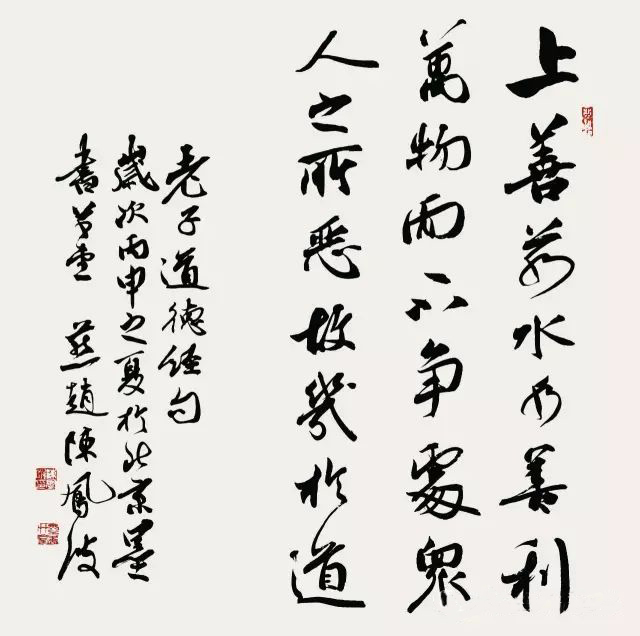 上善若水水善利
萬物而不争處眾
人之所惡故幾於道
老子道德经句
歲次丙申之夏於北京墨
書堂 燕趙陳鳳波